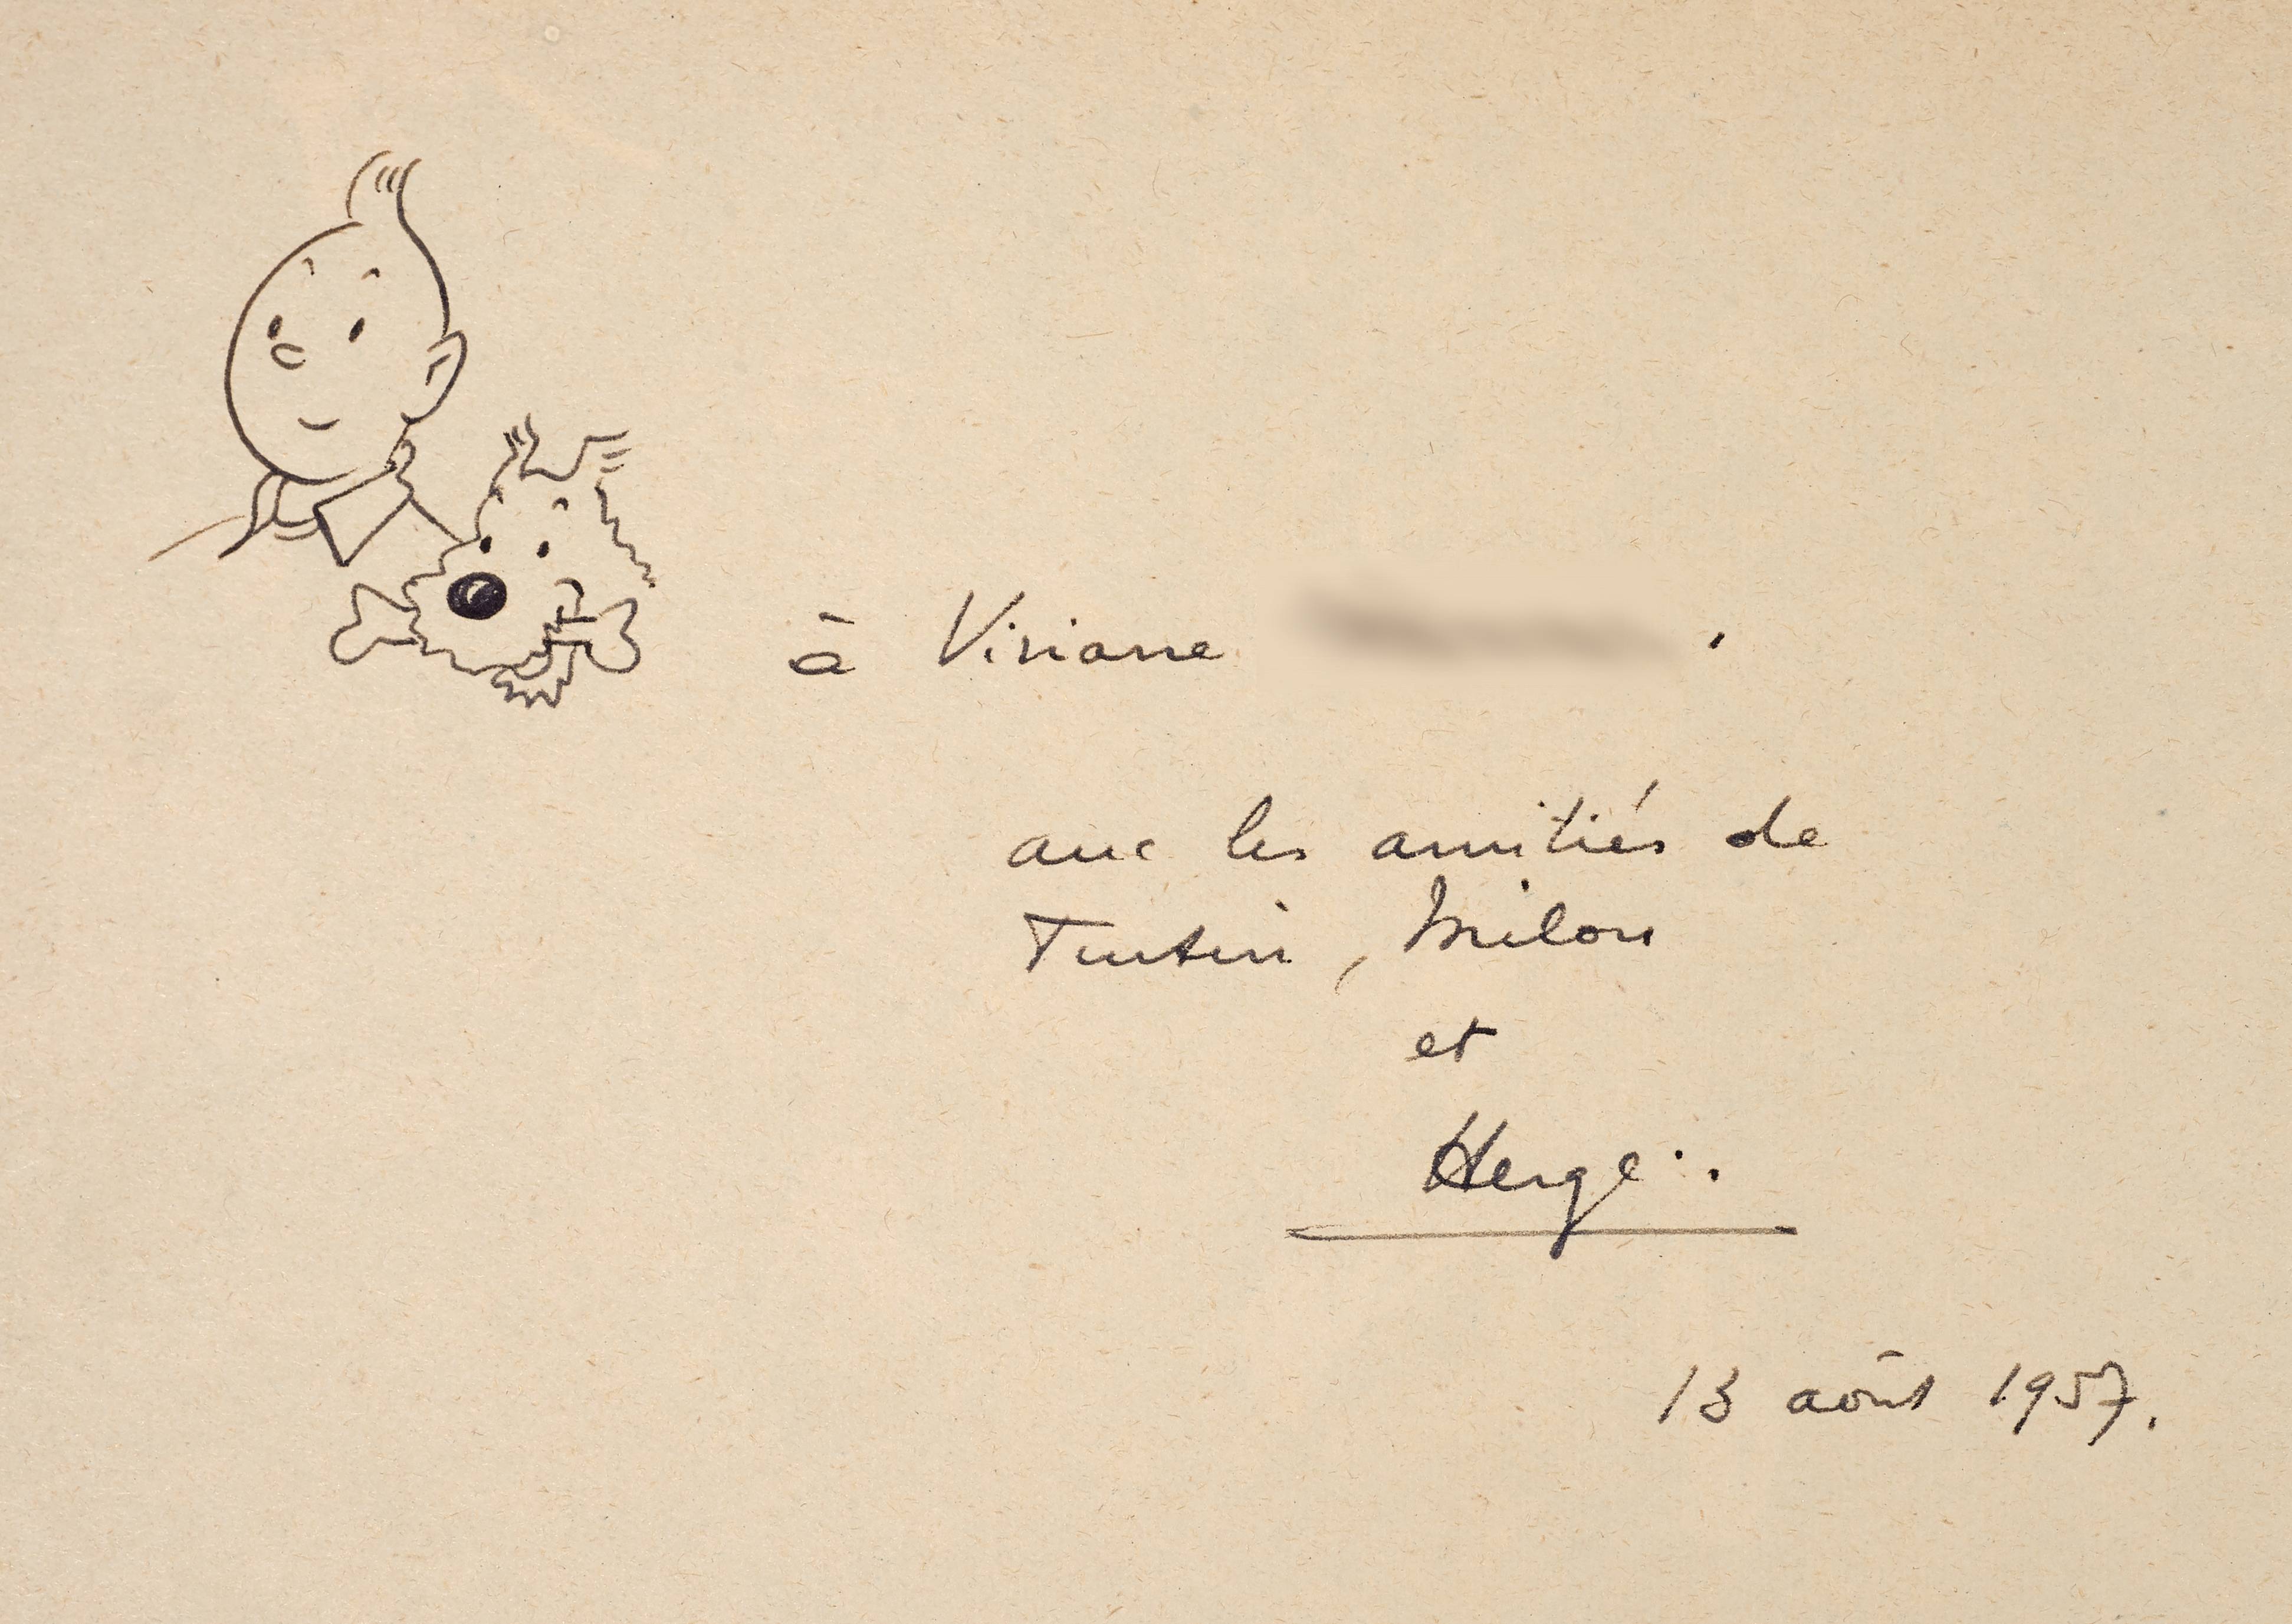 à Viviane ,
avec les amitiés de
Tintin, Milou
et
Hergé.
13 août 1957.